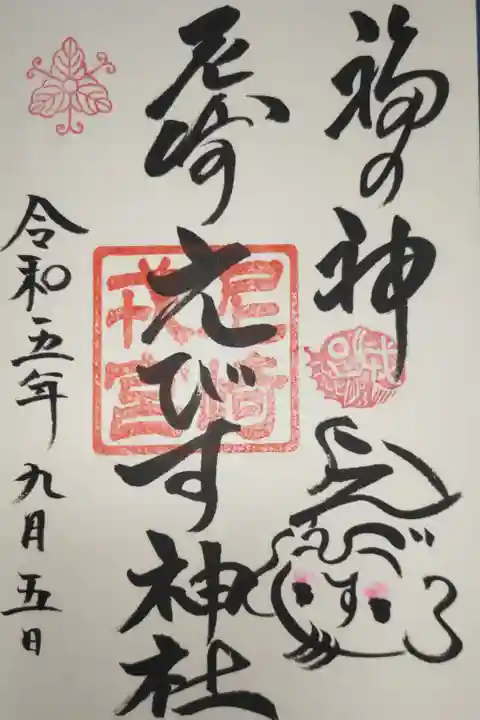 福の神
えびす
尼崎えびす神社
尼崎戎宮
令和五年九月五日